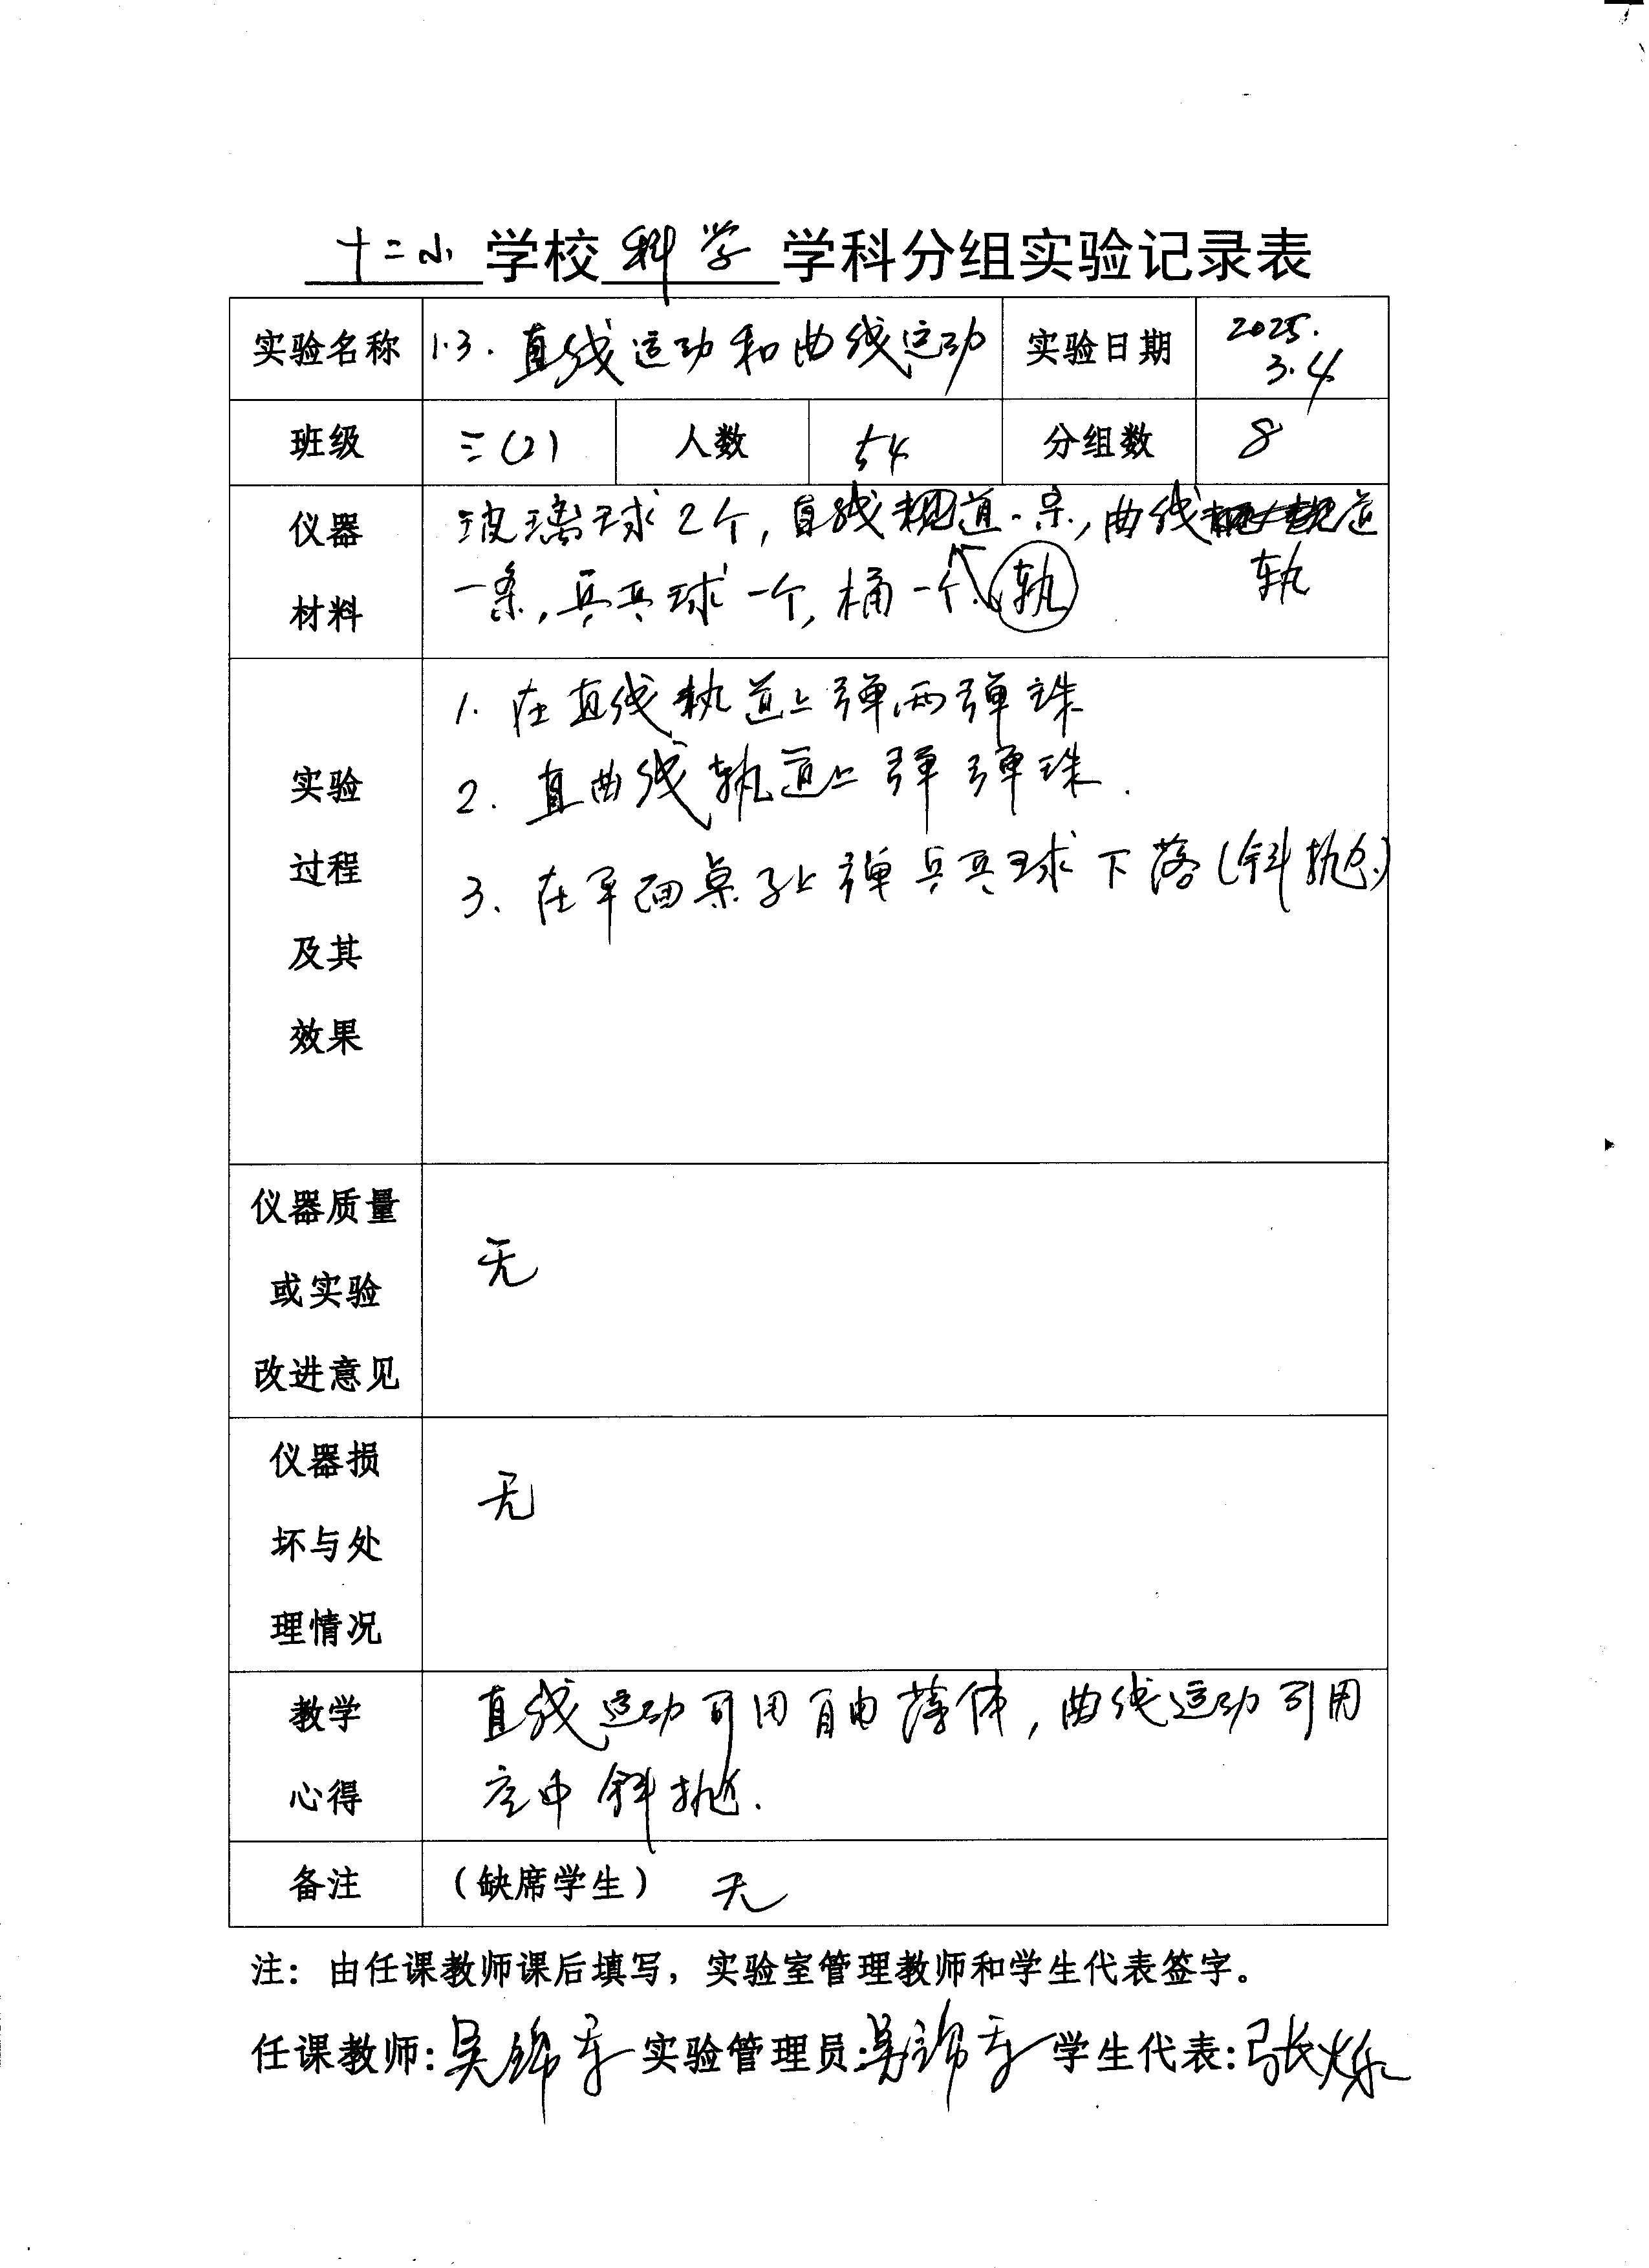 十二小 学校 科学 学科分组实验记录表
实验名称 1.3.直线运动和曲线运动 实验日期 2025.
3.4
班级 三(2) 人数 54 分组数 8
仪器 玻璃球2个,直线道一条,曲线道
轨
材料 一条,兵兵球一个,桶一个.轨
1.在直线轨道上弹两弹珠
2.直曲线轨道上弹弹珠.
实验
过程 3.在平面桌子上弹兵兵球下落(斜抛)
及其
效果
仪器质量
或实验 无
改进意见
仪器损
坏与处 无
理情况
教学 直线运动可用自由落体,曲线运动可用
心得 空中斜抛.
备注 (缺席学生) 无
注：由任课教师课后填写，实验室管理教师和学生代表签字。
任课教师:吴锦 实验管理员:吴锦 学生代表:张烁